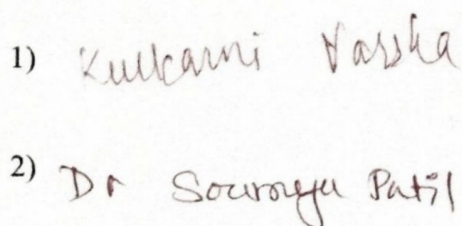 1) Kulkarni Varsha
2) Dr Sourouya Patil